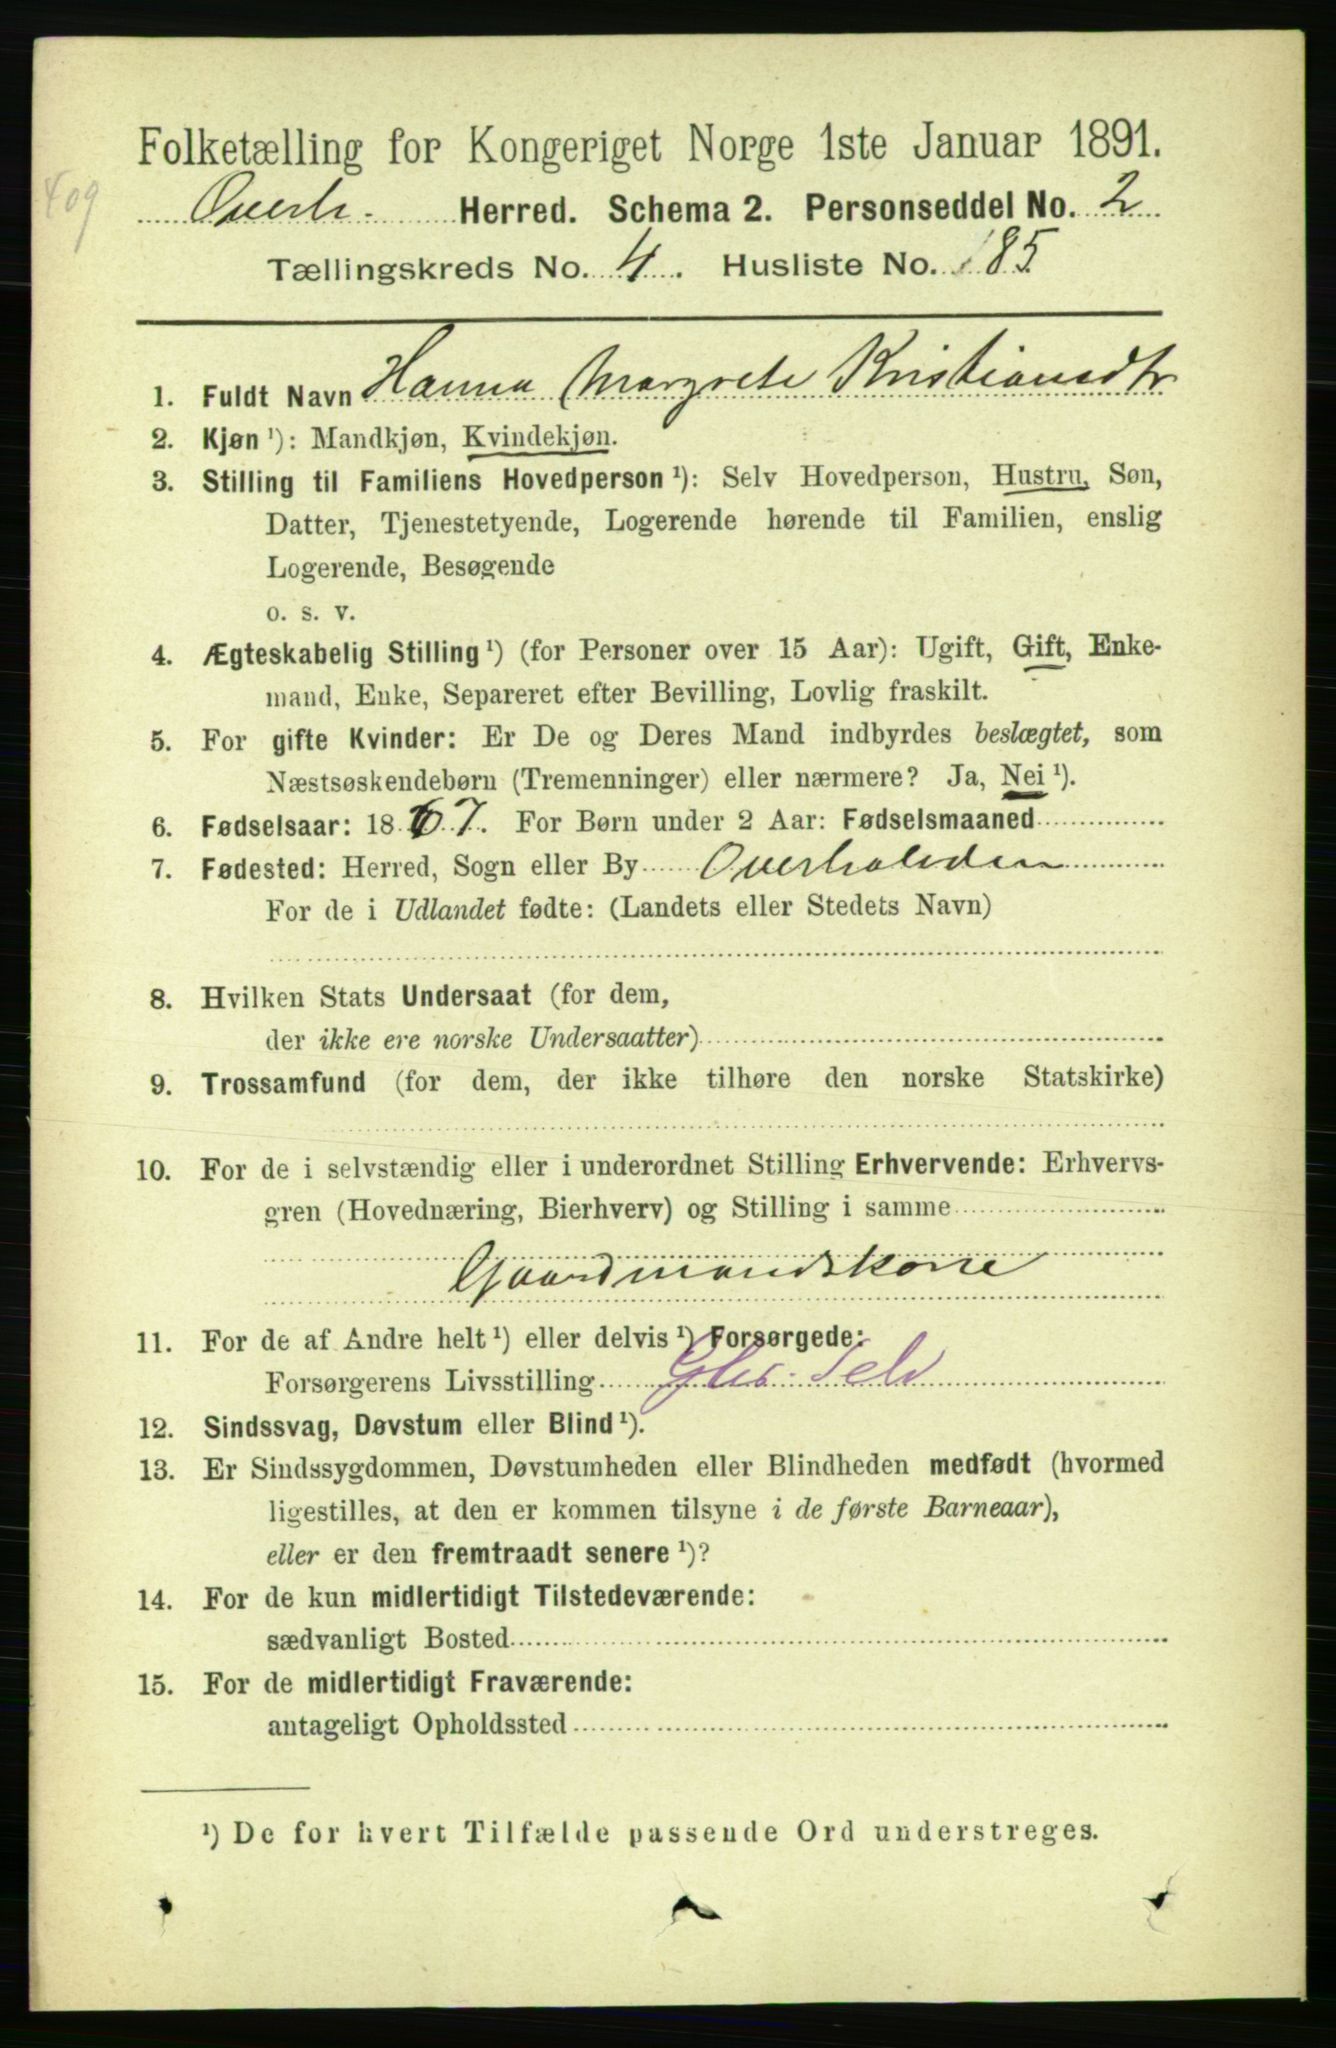 Folketælling for Kongeriget Norge 1ste Januar 1891.
409
Overh. Herred. Schema 2. Personseddel No. 2
Tællingskreds No. 4. Husliste No. 85
1. Fuldt Navn Hanna Margrete Kristiansdtr
2. Kjøn ¹): Mandkjøn, Kvindekjøn.
3. Stilling til Familiens Hovedperson ¹): Selv Hovedperson, Hustru, Søn,
Datter, Tjenestetyende, Logerende hørende til Familien, enslig
Logerende, Besøgende
o. s. v.
4. Ægteskabelig Stilling ¹) (for Personer over 15 Aar): Ugift, Gift, Enke-
mand, Enke, Separeret efter Bevilling, Lovlig fraskilt.
5. For gifte Kvinder: Er De og Deres Mand indbyrdes beslægtet, som
Næstsøskendebørn (Tremenninger) eller nærmere? Ja, Nei ¹).
6. Fødselsaar: 1867. For Børn under 2 Aar: Fødselsmaaned
7. Fødested: Herred, Sogn eller By Overhalvden
For de i Udlandet fødte: (Landets eller Stedets Navn)
8. Hvilken Stats Undersaat (for dem,
der ikke ere norske Undersaatter)
9. Trossamfund (for dem, der ikke tilhøre den norske Statskirke)
10. For de i selvstændig eller i underordnet Stilling Erhvervende: Erhvervs-
gren (Hovednæring, Bierhverv) og Stilling i samme
Gaardmandskone
11. For de af Andre helt ¹) eller delvis ¹) Forsørgede:
Forsørgerens Livsstilling Gbr. Selv
12. Sindssvag, Døvstum eller Blind ¹).
13. Er Sindssygdommen, Døvstumheden eller Blindheden medfødt (hvormed
ligestilles, at den er kommen tilsyne i de første Barneaar),
eller er den fremtraadt senere ¹)?
14. For de kun midlertidigt Tilstedeværende:
sædvanligt Bosted
15. For de midlertidigt Fraværende:
antageligt Opholdssted
¹) De for hvert Tilfælde passende Ord understreges.